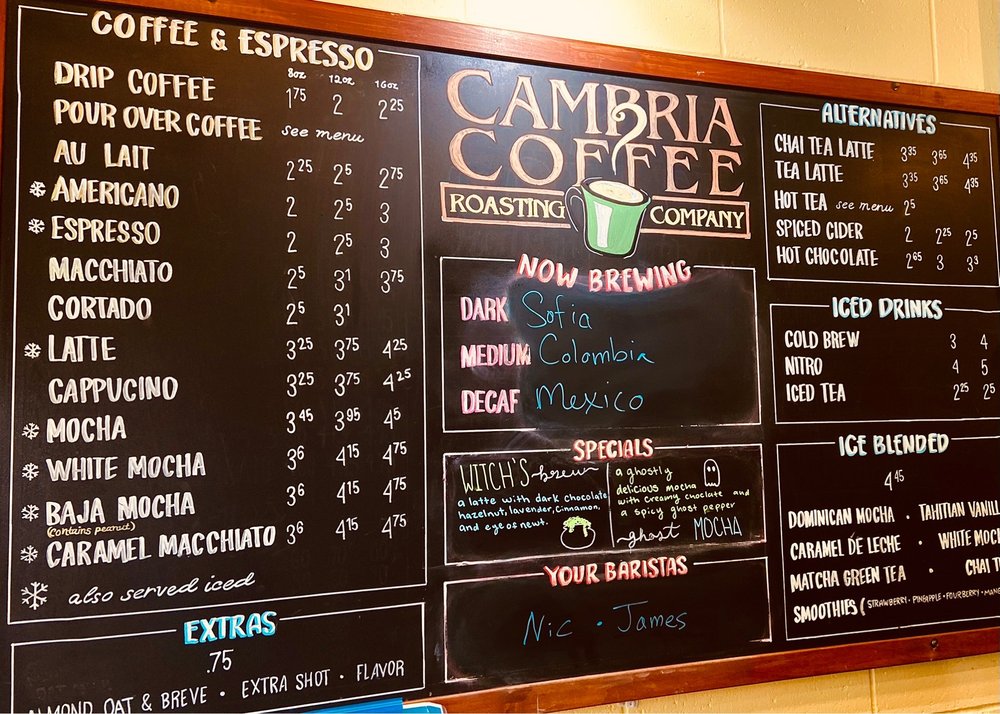 COFFEE & ESPRESSO
8oz 12oz 16oz
DRIP COFFEE 1.75 2 2.25
POUR OVER COFFEE see menu
AU LAIT 2.25 2.5 2.75
AMERICANO 2 2.5 3
ESPRESSO 2 2.5 3
MACCHIATO 2.5 3.1 3.75
CORTADO 2.5 3.1
LATTE 3.25 3.75 4.25
CAPPUCINO 3.25 3.75 4.25
MOCHA 3.45 3.95 4.5
WHITE MOCHA 3.6 4.15 4.75
BAJA MOCHA 3.6 4.15 4.75
(contains peanut)
CARAMEL MACCHIATO 3.6 4.15 4.75
also served iced
EXTRAS
.75
ALMOND OAT & BREVE • EXTRA SHOT • FLAVOR
CAMBRIA
COFFEE
ROASTING COMPANY
NOW BREWING
DARK Sofia
MEDIUM Colombia
DECAF Mexico
SPECIALS
WITCH'S brew
a latte with dark chocolate
hazelnut, lavender, cinnamon,
and eye of newt.
a ghostly
delicious mocha
with creamy choclate and
a spicy ghost pepper
ghost MOCHA
YOUR BARISTAS
Nic • James
ALTERNATIVES
CHAI TEA LATTE 3.35 3.65 4.35
TEA LATTE 3.35 3.65 4.35
HOT TEA see menu 2.5
SPICED CIDER 2 2.25 2.5
HOT CHOCOLATE 2.65 3 3.3
ICED DRINKS
COLD BREW 3 4
NITRO 4 5
ICED TEA 2.25 2.5
ICE BLENDED
4.45
DOMINICAN MOCHA • TAHITIAN VANILL
CARAMEL DE LECHE • WHITE MOC
MATCHA GREEN TEA • CHAI T
SMOOTHIES (STRAWBERRY • PINEAPPLE • FOURBERRY • MANG